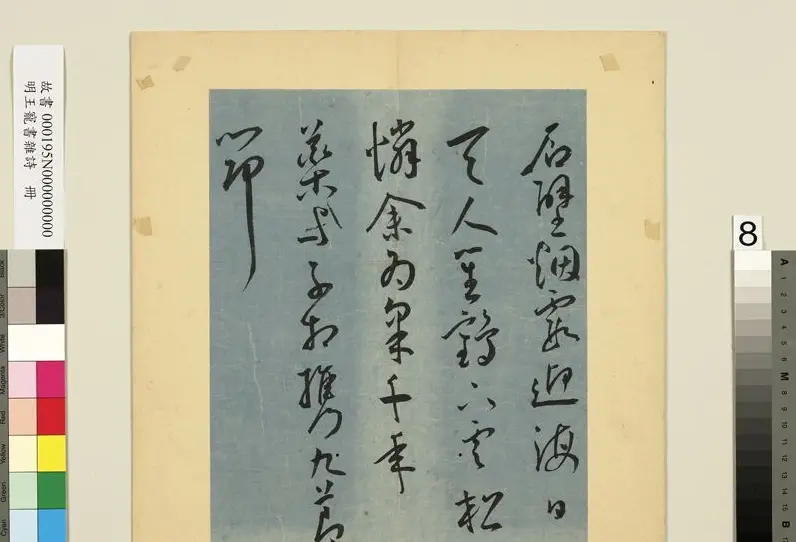 石壁烟霞迎海日
天人笙鶴下雲松
憐余為采千年
藥與子相攜九節
筇
故書 000195N000000000
明王寵書雜詩 冊
8
Black
3/Color
White
Magenta
Red
Yellow
Green
Cyan
A 1 2 3 4 5 6 M 8 9 10 11 12 13 14 15 B